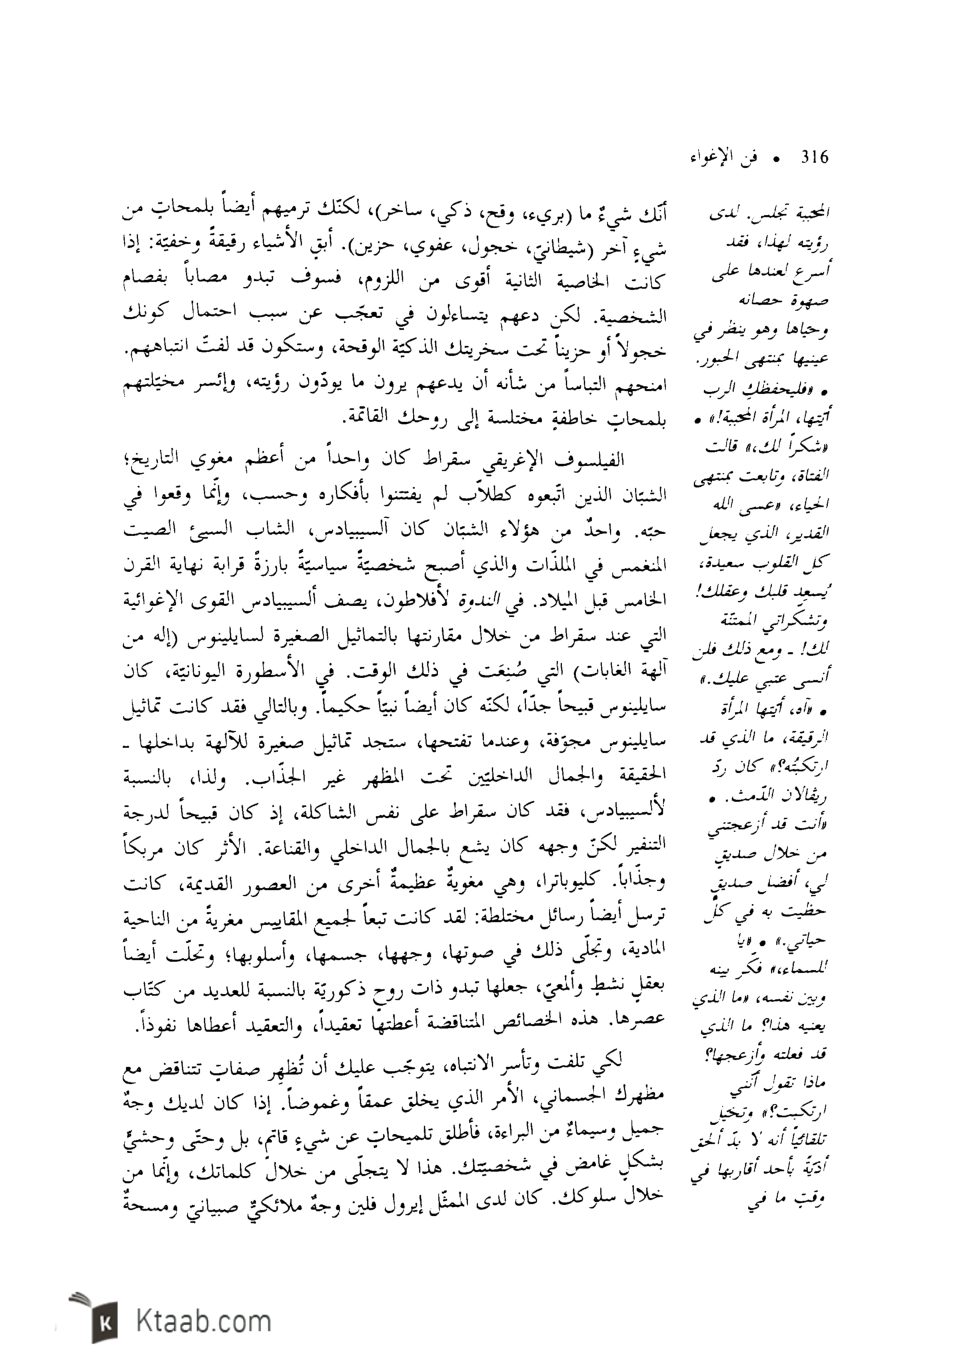 316 • فن الإغواء
أنّك شيءٌ ما (بريء، وقح، ذكي، ساخر)، لكنّك ترميهم أيضاً بلمحاتٍ من
شيءٍ آخر (شيطانيّ، خجول، عفوي، حزين). أبقِ الأشياء رقيقةً وخفيّة: إذا
كانت الخاصية الثانية أقوى من اللزوم، فسوف تبدو مصاباً بفصام
الشخصية. لكن دعهم يتساءلون في تعجّب عن سبب احتمال كونك
خجولاً أو حزيناً تحت سخريتك الذكيّة الوقحة، وستكون قد لفتّ انتباههم.
امنحهم التباساً من شأنه أن يدعهم يرون ما يودّون رؤيته، وإئسر مخيّلتهم
بلمحاتٍ خاطفةٍ مختلسة إلى روحك القاتمة.
الفيلسوف الإغريقي سقراط كان واحداً من أعظم مغوي التاريخ؛
الشبّان الذين اتّبعوه كطلاّب لم يفتتنوا بأفكاره وحسب، وإنّما وقعوا في
حبّه. واحدٌ من هؤلاء الشبّان كان آلسيبيادس، الشاب السيئ الصيت
المنغمس في الملذّات والذي أصبح شخصيّةً سياسيّةً بارزةً قرابة نهاية القرن
الخامس قبل الميلاد. في الندوة لأفلاطون، يصف ألسيبيادس القوى الإغوائية
التي عند سقراط من خلال مقارنتها بالتماثيل الصغيرة لسايلينوس (إله من
آلهة الغابات) التي صُنِعَت في ذلك الوقت. في الأسطورة اليونانيّة، كان
سايلينوس قبيحاً جدّاً، لكنّه كان أيضاً نبيّاً حكيماً. وبالتالي فقد كانت تماثيل
سايلينوس مجوّفة، وعندما تفتحها، ستجد تماثيل صغيرة للآلهة بداخلها ـ
الحقيقة والجمال الداخليّين تحت المظهر غير الجذّاب. ولذا، بالنسبة
لألسيبيادس، فقد كان سقراط على نفس الشاكلة، إذ كان قبيحاً لدرجة
التنفير لكنّ وجهه كان يشع بالجمال الداخلي والقناعة. الأثر كان مربكاً
وجذّاباً. كليوباترا، وهي مغويةٌ عظيمةٌ أخرى من العصور القديمة، كانت
ترسل أيضاً رسائل مختلطة: لقد كانت تبعاً لجميع المقاييس مغريةً من الناحية
المادية، وتجلّى ذلك في صوتها، وجهها، جسمها، وأسلوبها؛ وتحلّت أيضاً
بعقلٍ نشطٍ وألمعيّ، جعلها تبدو ذات روحٍ ذكوريّة بالنسبة للعديد من كتّاب
عصرها. هذه الخصائص المتناقضة أعطتها تعقيداً، والتعقيد أعطاها نفوذاً.
لكي تلفت وتأسر الانتباه، يتوجّب عليك أن تُظهِر صفاتٍ تتناقض مع
مظهرك الجسماني، الأمر الذي يخلق عمقاً وغموضاً. إذا كان لديك وجهٌ
جميل وسيماءٌ من البراءة، فأطلق تلميحاتٍ عن شيءٍ قاتمٍ، بل وحتّى وحشيٍّ
بشكلٍ غامض في شخصيّتك. هذا لا يتجلّى من خلال كلماتك، وإنّما من
خلال سلوكك. كان لدى الممثّل إيرول فلين وجهٌ ملائكيٌّ صبيانيّ ومسحةٌ
المحببة تجلس. لدى
رؤيته لهذا، فقد
أسرع لعندها على
صهوة حصانه
وحيّاها وهو ينظر في
عينيها بمنتهى الحبور.
• «فليحفظكِ الرب
أيّتها، المرأة المحببة!» •
«شكراً لك،» قالت
الفتاة، وتابعت بمنتهى
الحياء، «عسى الله
القدير، الذي يجعل
كل القلوب سعيدة،
يُسعِد قلبك وعقلك!
وتشكراتي الممتنّة
لك! ـ ومع ذلك فلن
أنسى عتبي عليك.»
• «آه، أيّتها المرأة
الرقيقة، ما الذي قد
ارتكبتُه؟» كان ردّ
ريڤالان الدّمث. •
«أنت قد أزعجتني
من خلال صديقٍ
لي، أفضل صديقٍ
حظيت به في كلّ
حياتي.» • «يا
للسماء،» فكّر بينه
وبين نفسه، «ما الذي
يعنيه هذا؟ ما الذي
قد فعلته وأزعجها؟
ماذا تقول أنّني
ارتكبت؟» وتخيّل
تلقائيّاً أنه لا بدّ ألحق
أذيّةً بأحد أقاربها في
وقتٍ ما في
Ktaab.com